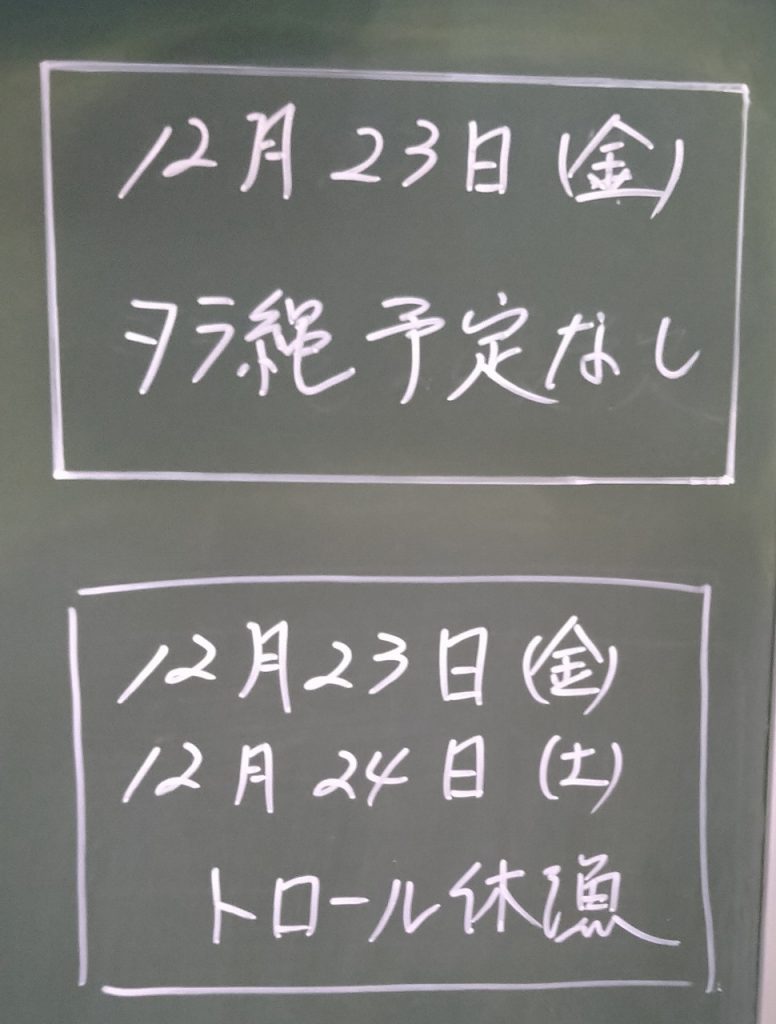 12月23日(金)
タラ縄予定なし
12月23日(金)
12月24日(土)
トロール休漁